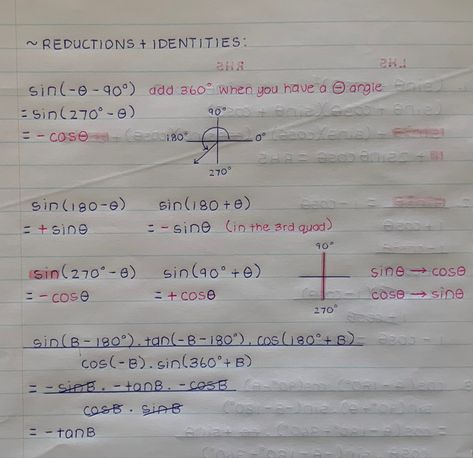 ~ REDUCTIONS + IDENTITIES:
sin(-θ - 90°) add 360° when you have a ⊖ angle
= sin(270° - θ)
= - cosθ
90°
180° 0°
270°
sin(180-θ) sin(180+θ)
= + sinθ = - sinθ (in the 3rd quad)
90°
sin(270° - θ) sin(90° + θ) sinθ → cosθ
= - cosθ = + cosθ cosθ → sinθ
270°
sin(B - 180°). tan(-B - 180°). cos(180° + B)
cos(-B). sin(360° + B)
= - sinB . - tanB . - cosB
cosB . sinB
= - tanB